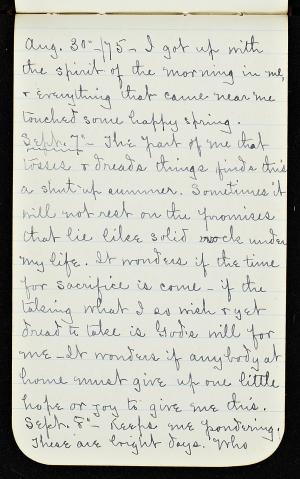 Aug. 30th-/75- I got up with
the spirit of the morning in me,
& everything that came near me
touched some happy spring.
Sept. 7th- The part of me that
tosses & dreads things finds this
a shut-up summer. Sometimes it
will not rest on the promises
that lie like solid rock under
my life. It wonders if the time
for sacrifice is come - if the
taking what I so wish & yet
dread to take is God's will for
me - It wonders if anybody at
home must give up one little
hope or joy to give me this.
Sept. 8th- Keeps me pondering.
These are bright days. Who